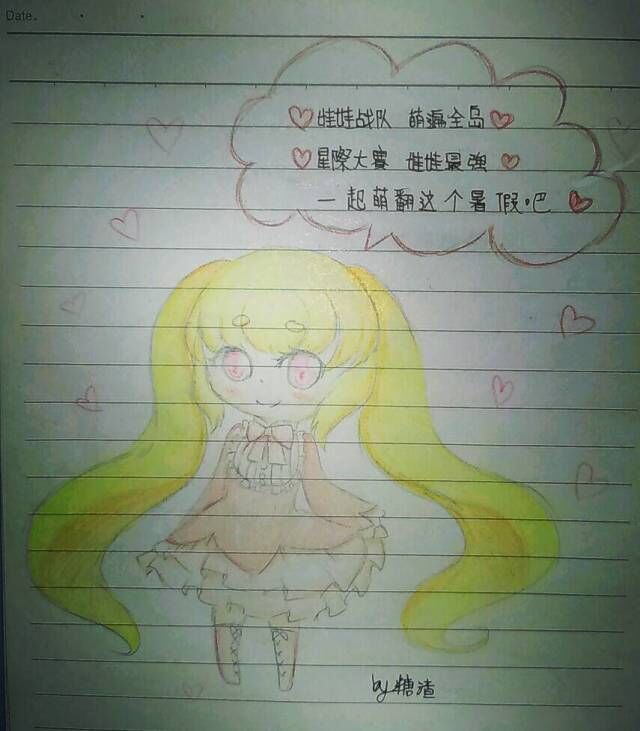 Date.
娃娃战队 萌遍全岛
星際大賽 娃娃最強
一起萌翻这个暑假吧
by糖渣